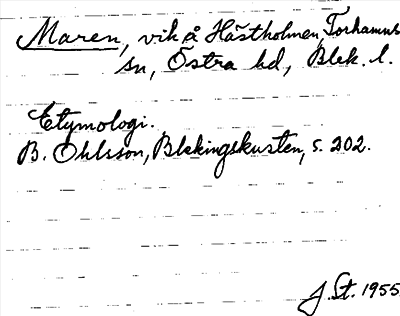 Maren, vik å Hästholmen, Torhamns
sn, Östra hd, Blek. l.
Etymologi.
B. Ohlsson, Blekingskusten, s. 202.
J. St. 1955